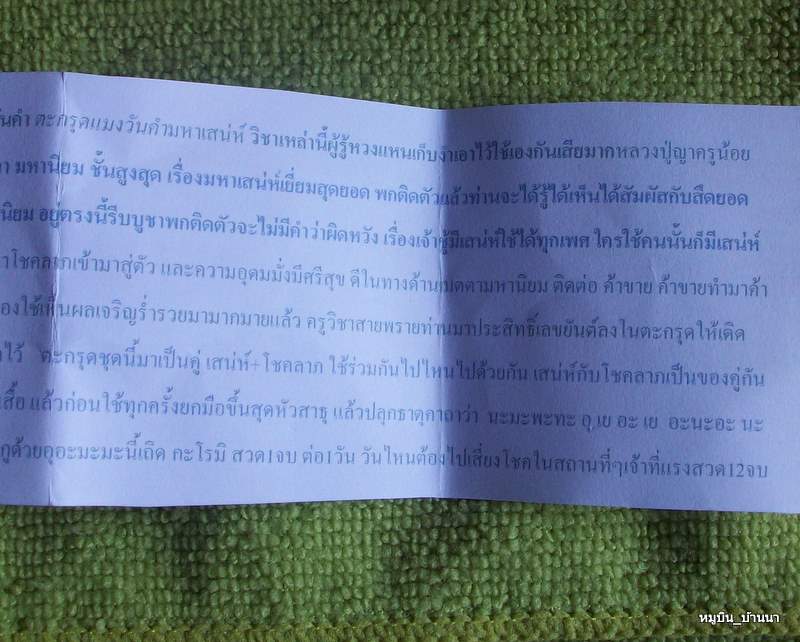 นคำ ตะกรุดแมงวันคำมหาเสน่ห์ วิชาเหล่านี้ผู้รู้หวงแหนเก็บงำเอาไว้ใช้เองกันเสียมากหลวงปู่ญาครูน้อย
มหานิยม ชั้นสูงสุด เรื่องมหาเสน่ห์เยี่ยมสุดยอด พกติดตัวแล้วท่านจะได้รู้ได้เห็นได้สัมผัสกับสุดยอด
นิยม อยู่ตรงนี้รีบบูชาพกติดตัวจะไม่มีคำว่าผิดหวัง เรื่องเจ้าชู้มีเสน่ห์ใช้ได้ทุกเพศ ใครใช้คนนั้นก็มีเสน่ห์
โชคลาภเข้ามาสู่ตัว และความอุดมมั่งมีศรีสุข ดีในทางด้านเมตตามหานิยม ติดต่อ ค้าขาย ค้าขายทำมาค้า
องใช้เห็นผลเจริญร่ำรวยมามากมายแล้ว ครูวิชาสายพรายท่านมาประสิทธิ์เลขยันต์ลงในตะกรุดให้เกิด
ไว้ ตะกรุดชุดนี้มาเป็นคู่ เสน่ห์+โชคลาภ ใช้ร่วมกันไปไหนไปด้วยกัน เสน่ห์กับโชคลาภเป็นของคู่กัน
สื้อ แล้วก่อนใช้ทุกครั้งยกมือขึ้นสุดหัวสาธุ แล้วปลุกธาตุคาถาว่า นะมะพะทะ อุ เย อะ เย อะนะอะ นะ
กูด้วยอุอะมะมะนี้เถิด กะโรมิ สวด1จบ ต่อ1วัน วันไหนต้องไปเสี่ยงโชคในสถานที่ๆเจ้าที่แรงสวด12จบ
หมูบิน_บ้านนา